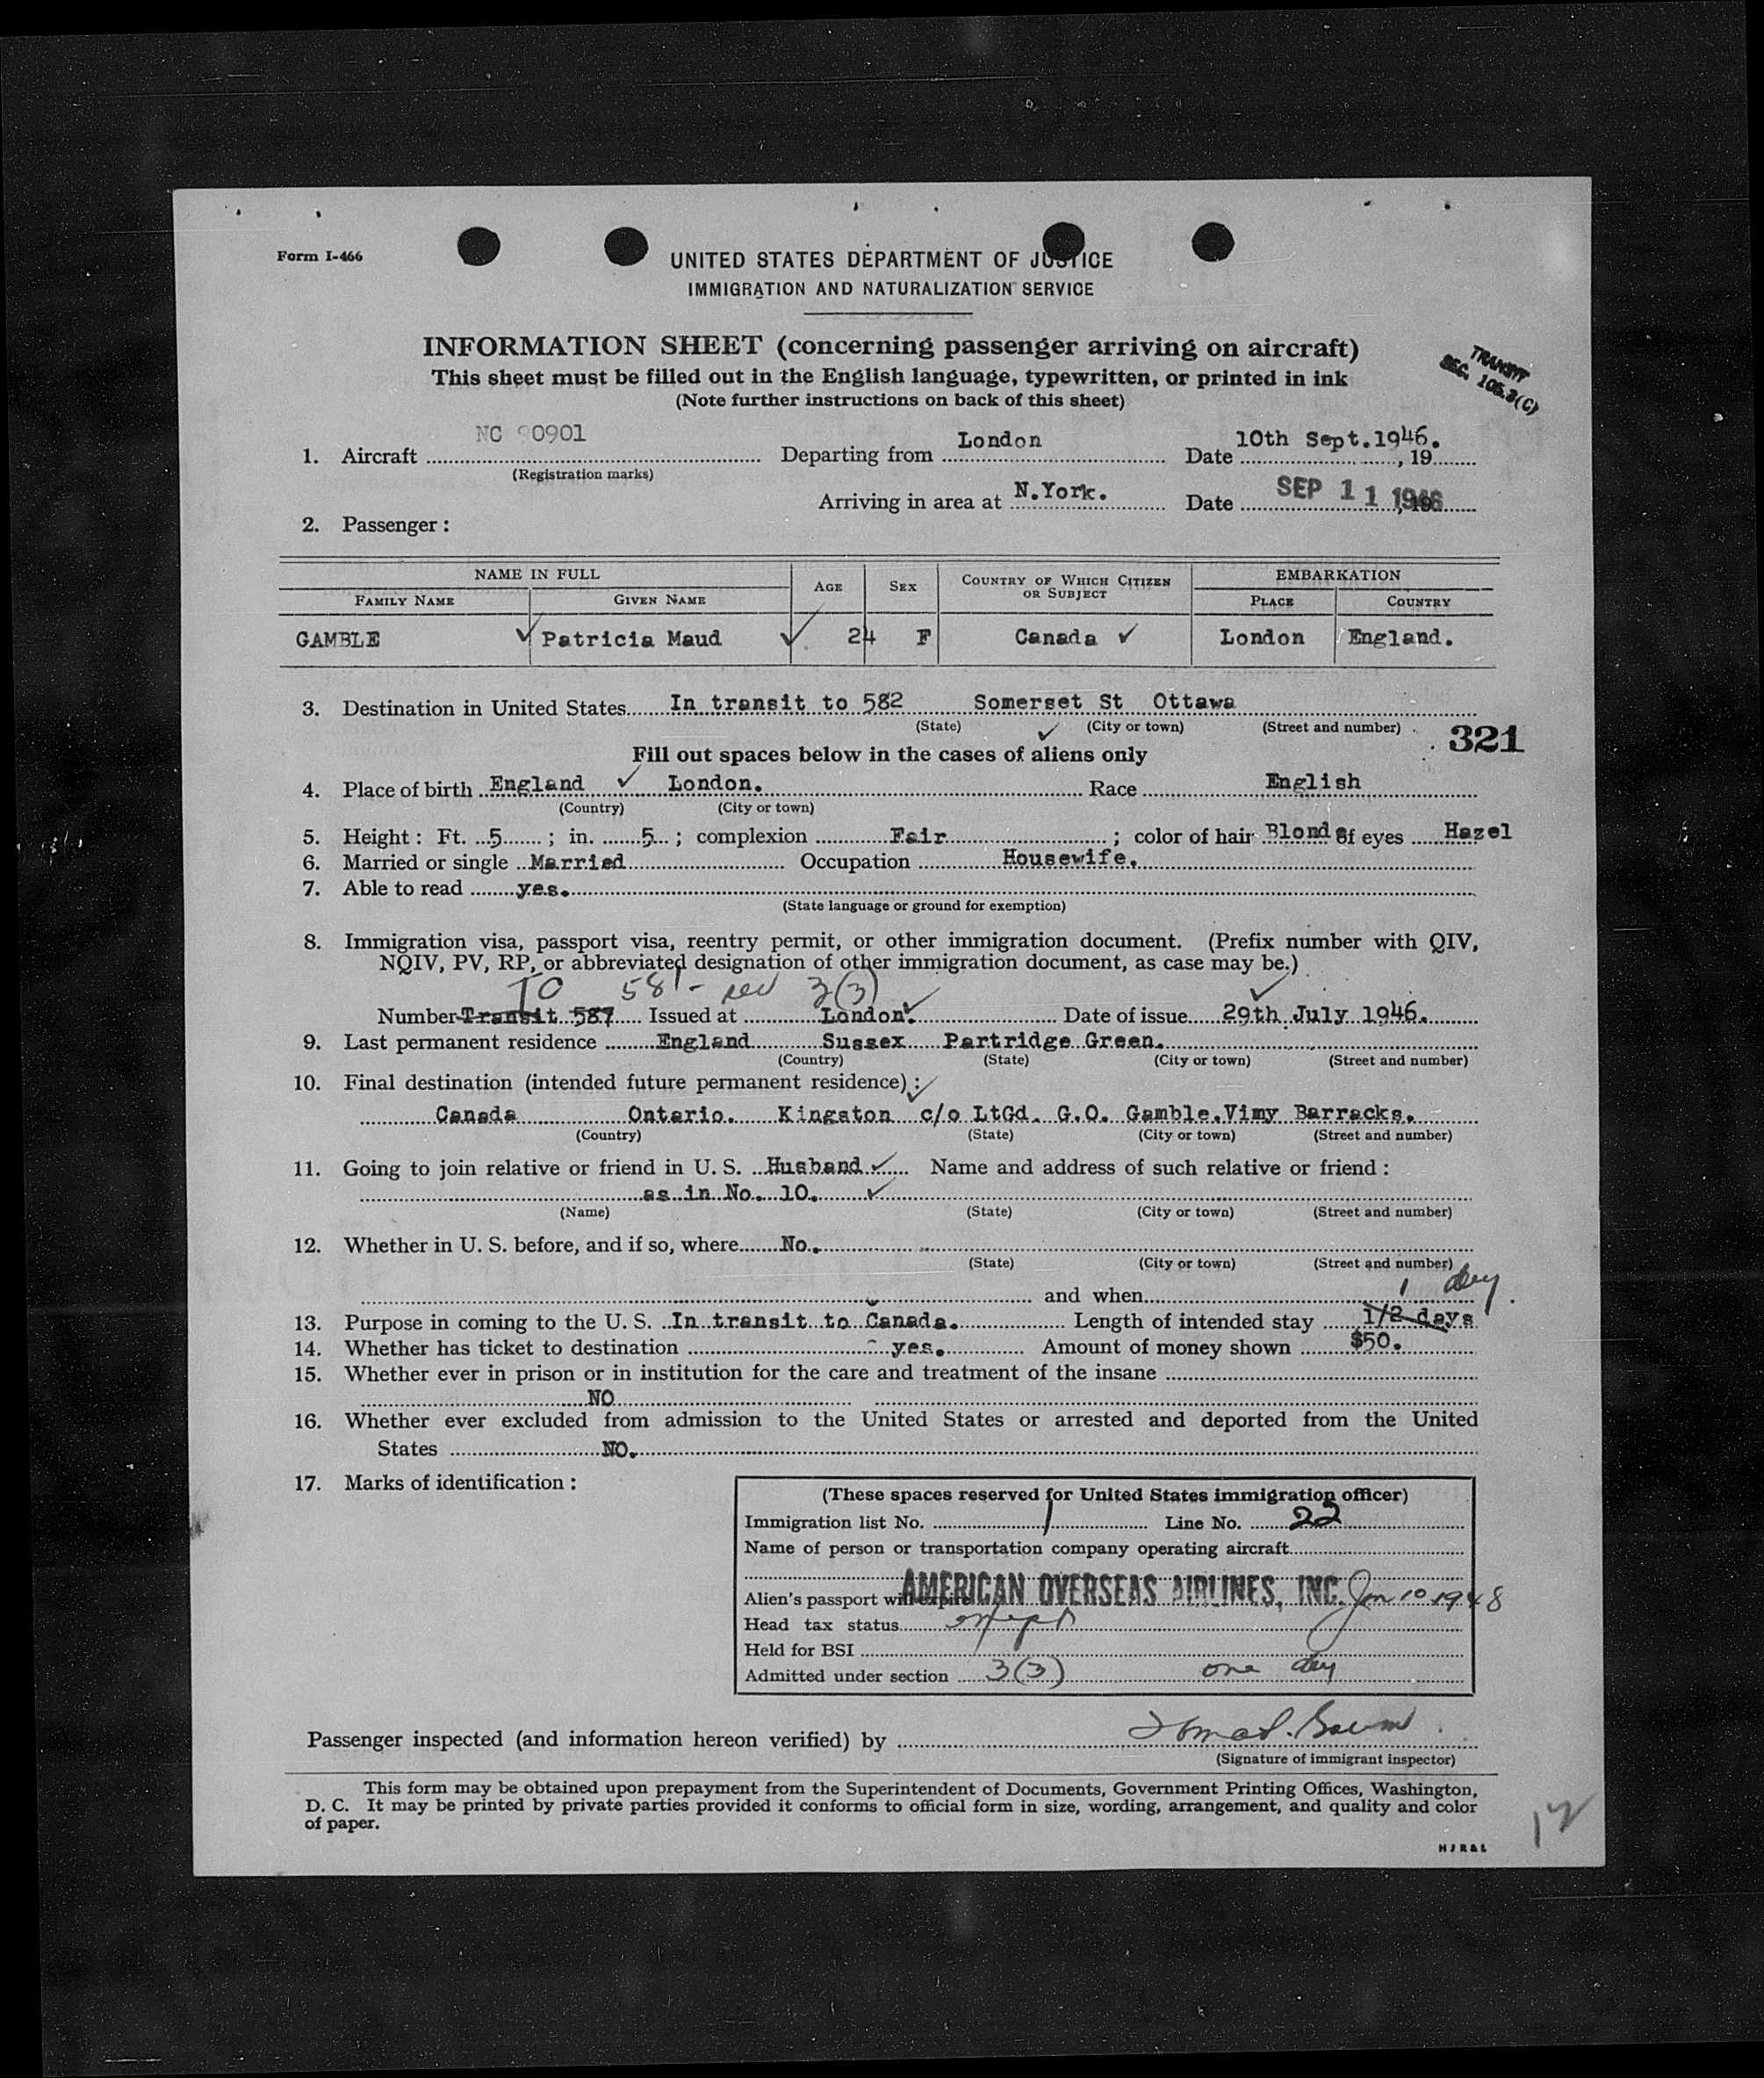 Form I-466
UNITED STATES DEPARTMENT OF JUSTICE
IMMIGRATION AND NATURALIZATION SERVICE
INFORMATION SHEET (concerning passenger arriving on aircraft)
This sheet must be filled out in the English language, typewritten, or printed in ink
(Note further instructions on back of this sheet)
TRANSIT
SEC. 105.3(C)
1. Aircraft NC 90901 Departing from London Date 10th Sept.1946. , 19
(Registration marks)
Arriving in area at N.York. Date SEP 11 1946
2. Passenger :
NAME IN FULL AGE SEX COUNTRY OF WHICH CITIZEN OR SUBJECT EMBARKATION
FAMILY NAME GIVEN NAME PLACE COUNTRY
GAMBLE ✓ Patricia Maud ✓ 24 F Canada ✓ London England.
3. Destination in United States In transit to 582 Somerset St Ottawa
(State) ✓ (City or town) (Street and number)
321
Fill out spaces below in the cases of aliens only
4. Place of birth England ✓ London. Race English
(Country) (City or town)
5. Height : Ft. 5 ; in. 5 ; complexion Fair ; color of hair Blonde of eyes Hazel
6. Married or single Married Occupation Housewife.
7. Able to read yes.
(State language or ground for exemption)
8. Immigration visa, passport visa, reentry permit, or other immigration document. (Prefix number with QIV,
NQIV, PV, RP, or abbreviated designation of other immigration document, as case may be.)
581 - 3(3)
Number Transit 587 Issued at London. ✓ Date of issue 29th July 1946.
9. Last permanent residence England Sussex Partridge Green.
(Country) (State) (City or town) (Street and number)
10. Final destination (intended future permanent residence) : ✓
Canada Ontario. Kingston c/o LtGd. G.O. Gamble.Vimy Barracks.
(Country) (State) (City or town) (Street and number)
11. Going to join relative or friend in U. S. Husband ✓ Name and address of such relative or friend :
as in No. 10. ✓
(Name) (State) (City or town) (Street and number)
12. Whether in U. S. before, and if so, where No.
(State) (City or town) (Street and number)
and when 1 day
13. Purpose in coming to the U. S. In transit to Canada. Length of intended stay 1/2 days
14. Whether has ticket to destination yes. Amount of money shown $50.
15. Whether ever in prison or in institution for the care and treatment of the insane
NO
16. Whether ever excluded from admission to the United States or arrested and deported from the United
States NO.
17. Marks of identification :
(These spaces reserved for United States immigration officer)
Immigration list No. 1 Line No. 22
Name of person or transportation company operating aircraft
AMERICAN OVERSEAS AIRLINES, INC.
Alien's passport will expire Jan 10 1948
Head tax status
Held for BSI
Admitted under section 3(3) one day
Passenger inspected (and information hereon verified) by
(Signature of immigrant inspector)
This form may be obtained upon prepayment from the Superintendent of Documents, Government Printing Offices, Washington,
D. C. It may be printed by private parties provided it conforms to official form in size, wording, arrangement, and quality and color
of paper.
H J R & L